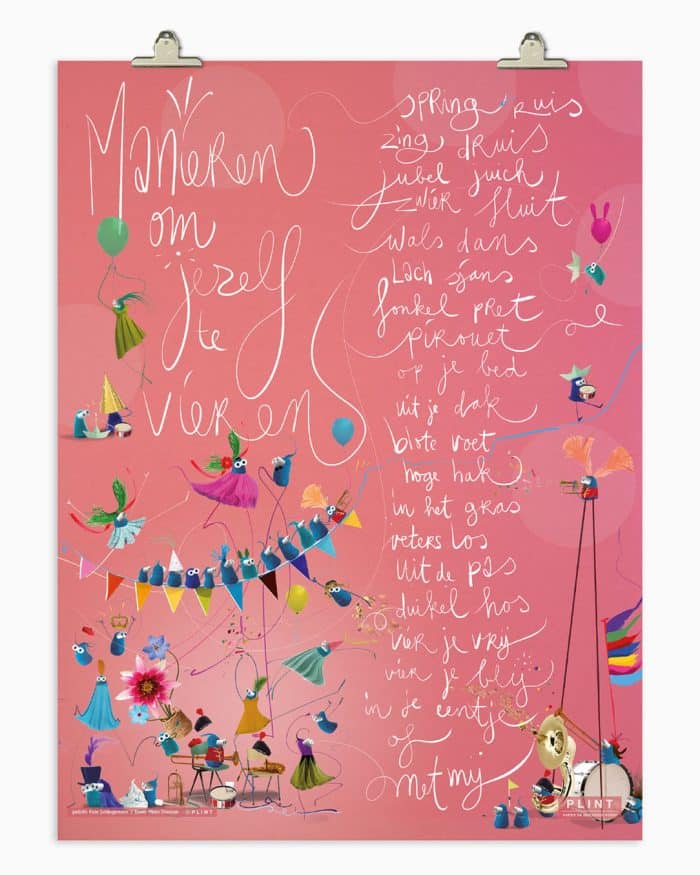 Manieren
om
jezelf
te
vieren
spring ruis
zing druis
jubel juich
zwier fluit
wals dans
lach sjans
fonkel pret
pirouet
op je bed
uit je dak
blote voet
hoge hak
in het gras
veters los
uit de pas
duikel hos
vier je vrij
vier je blij
in je eentje
of
met mij
PLINT
PLINT